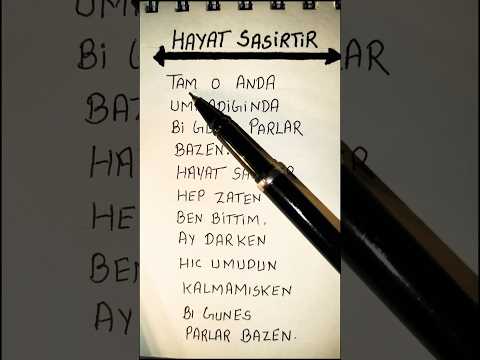 HAYAT SASiRTiR
TAM O ANDA
Bi PARLAR
BAZEN.
HAYAT
HEP ZATEN
BEN BiTTiM.
AY DARKEN
HiC UMUDUN
KALMAMISKEN
Bi GUNES
PARLAR BAZEN.